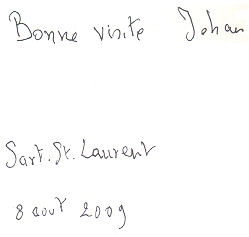 Bonne visite Johan
Sart. St. Laurent
8 août 2009